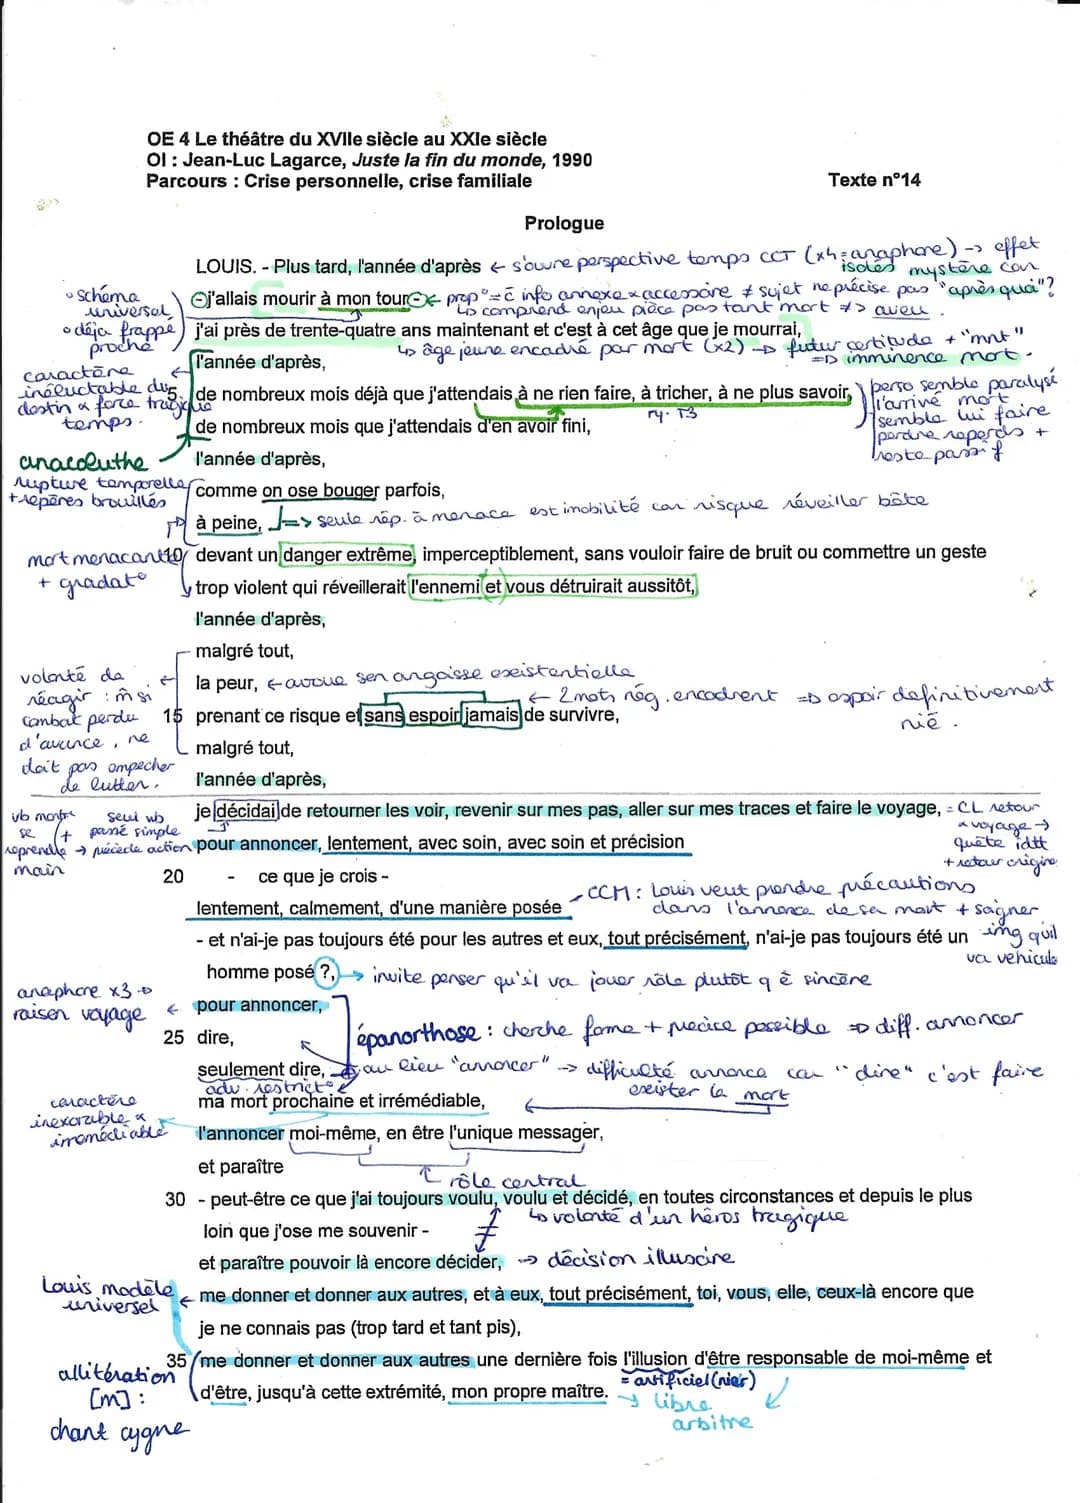 OE 4 Le théâtre du XVIIe siècle au XXIe siècle
OI : Jean-Luc Lagarce, Juste la fin du monde, 1990
Parcours : Crise personnelle, crise familiale
Texte n°14
Prologue
LOUIS. - Plus tard, l'année d'après ← s'ouvre perspective temps CCT (x4 = anaphore) → effet
isolés mystère car
"après quoi"?
• schéma universel
• déjà frappé proche
j'allais mourir à mon tour ← prop° = ē info annexe x accessoire ≠ sujet ne précise pas
↳ comprend enjeu pièce pas tant mort ≠> aveu.
j'ai près de trente-quatre ans maintenant et c'est à cet âge que je mourrai,
↳ âge jeune encadré par mort (x2) → futur certitude + "mnt"
=> imminence mort.
l'année d'après,
caractère inéluctable du destin & force tragique temps.
5 de nombreux mois déjà que j'attendais à ne rien faire, à tricher, à ne plus savoir,
ry. T3
perso semble paralysé
l'arrivé mort
semble lui faire
perdre repères +
reste passif
de nombreux mois que j'attendais d'en avoir fini,
anacoluthe
l'année d'après,
rupture temporelle
+ repères brouillés
comme on ose bouger parfois,
à peine, => seule rép. à menace est imobilité car risque réveiller bête
mort menacante
+ gradat°
10 devant un danger extrême, imperceptiblement, sans vouloir faire de bruit ou commettre un geste
trop violent qui réveillerait l'ennemi et vous détruirait aussitôt,
l'année d'après,
malgré tout,
volonté de
réagir : m̂ si
combat perdu
d'avance, ne
doit pas empecher
de lutter.
la peur, ← avoue son angoisse existentielle
← 2 mots nég. encadrent => espoir definitivement
nié.
15 prenant ce risque et sans espoir jamais de survivre,
malgré tout,
l'année d'après,
vb montre
se
reprendre
main
+ seul vb
passé simple
→ précède action
je décidai de retourner les voir, revenir sur mes pas, aller sur mes traces et faire le voyage, = CL retour
x voyage →
quête idtt
+ retour origine
pour annoncer, lentement, avec soin, avec soin et précision
20 - ce que je crois -
CCM : Louis veut prendre précautions
dans l'annonce de sa mort + soigner
img qu'il
va vehicule
lentement, calmement, d'une manière posée
- et n'ai-je pas toujours été pour les autres et eux, tout précisément, n'ai-je pas toujours été un
homme posé ?, → invite penser qu'il va jouer rôle plutôt q ê sincère
anaphore x3 →
raison voyage
← pour annoncer,
25 dire,
épanorthose : cherche forme + précise possible => diff. annoncer
seulement dire, au lieu "annoncer" → difficulté annonce car "dire" c'est faire
exister la mort
adv. restrict°
caractère
inexorable &
irrémédiable
ma mort prochaine et irrémédiable,
l'annoncer moi-même, en être l'unique messager,
et paraître
rôle central
30 - peut-être ce que j'ai toujours voulu, voulu et décidé, en toutes circonstances et depuis le plus
loin que j'ose me souvenir -
≠
↳ volonté d'un héros tragique
et paraître pouvoir là encore décider, → décision illusoire
Louis modèle
universel
← me donner et donner aux autres, et à eux, tout précisément, toi, vous, elle, ceux-là encore que
je ne connais pas (trop tard et tant pis),
allitération
[m] :
chant cygne
35 me donner et donner aux autres une dernière fois l'illusion d'être responsable de moi-même et
= artificiel (nier)
d'être, jusqu'à cette extrémité, mon propre maître.
→ libre
arbitre